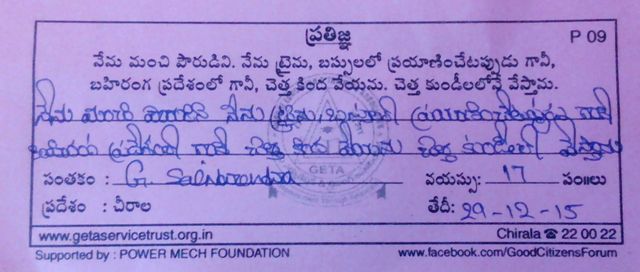 ప్రతిజ్ఞ
P 09
నేను మంచి పౌరుడిని. నేను ట్రైను, బస్సులలో ప్రయాణించేటప్పుడు గానీ,
బహిరంగ ప్రదేశంలో గానీ, చెత్త కింద వేయను. చెత్త కుండీలలోనే వేస్తాను.
నేను మంచి పౌరుడిని నేను ట్రైను, బస్సులలో ప్రయాణించేటప్పుడు గానీ
బహిరంగ ప్రదేశంలో గానీ చెత్త కింద వేయను చెత్త కుండీలలో వేస్తాను
GETA
సంతకం : G. వయస్సు: 17 సం॥లు
ప్రదేశం : చీరాల తేదీ: 29-12-15
www.getaservicetrust.org.in Chirala ☎ 22 00 22
Supported by : POWER MECH FOUNDATION www.facebook.com/GoodCitizensForum